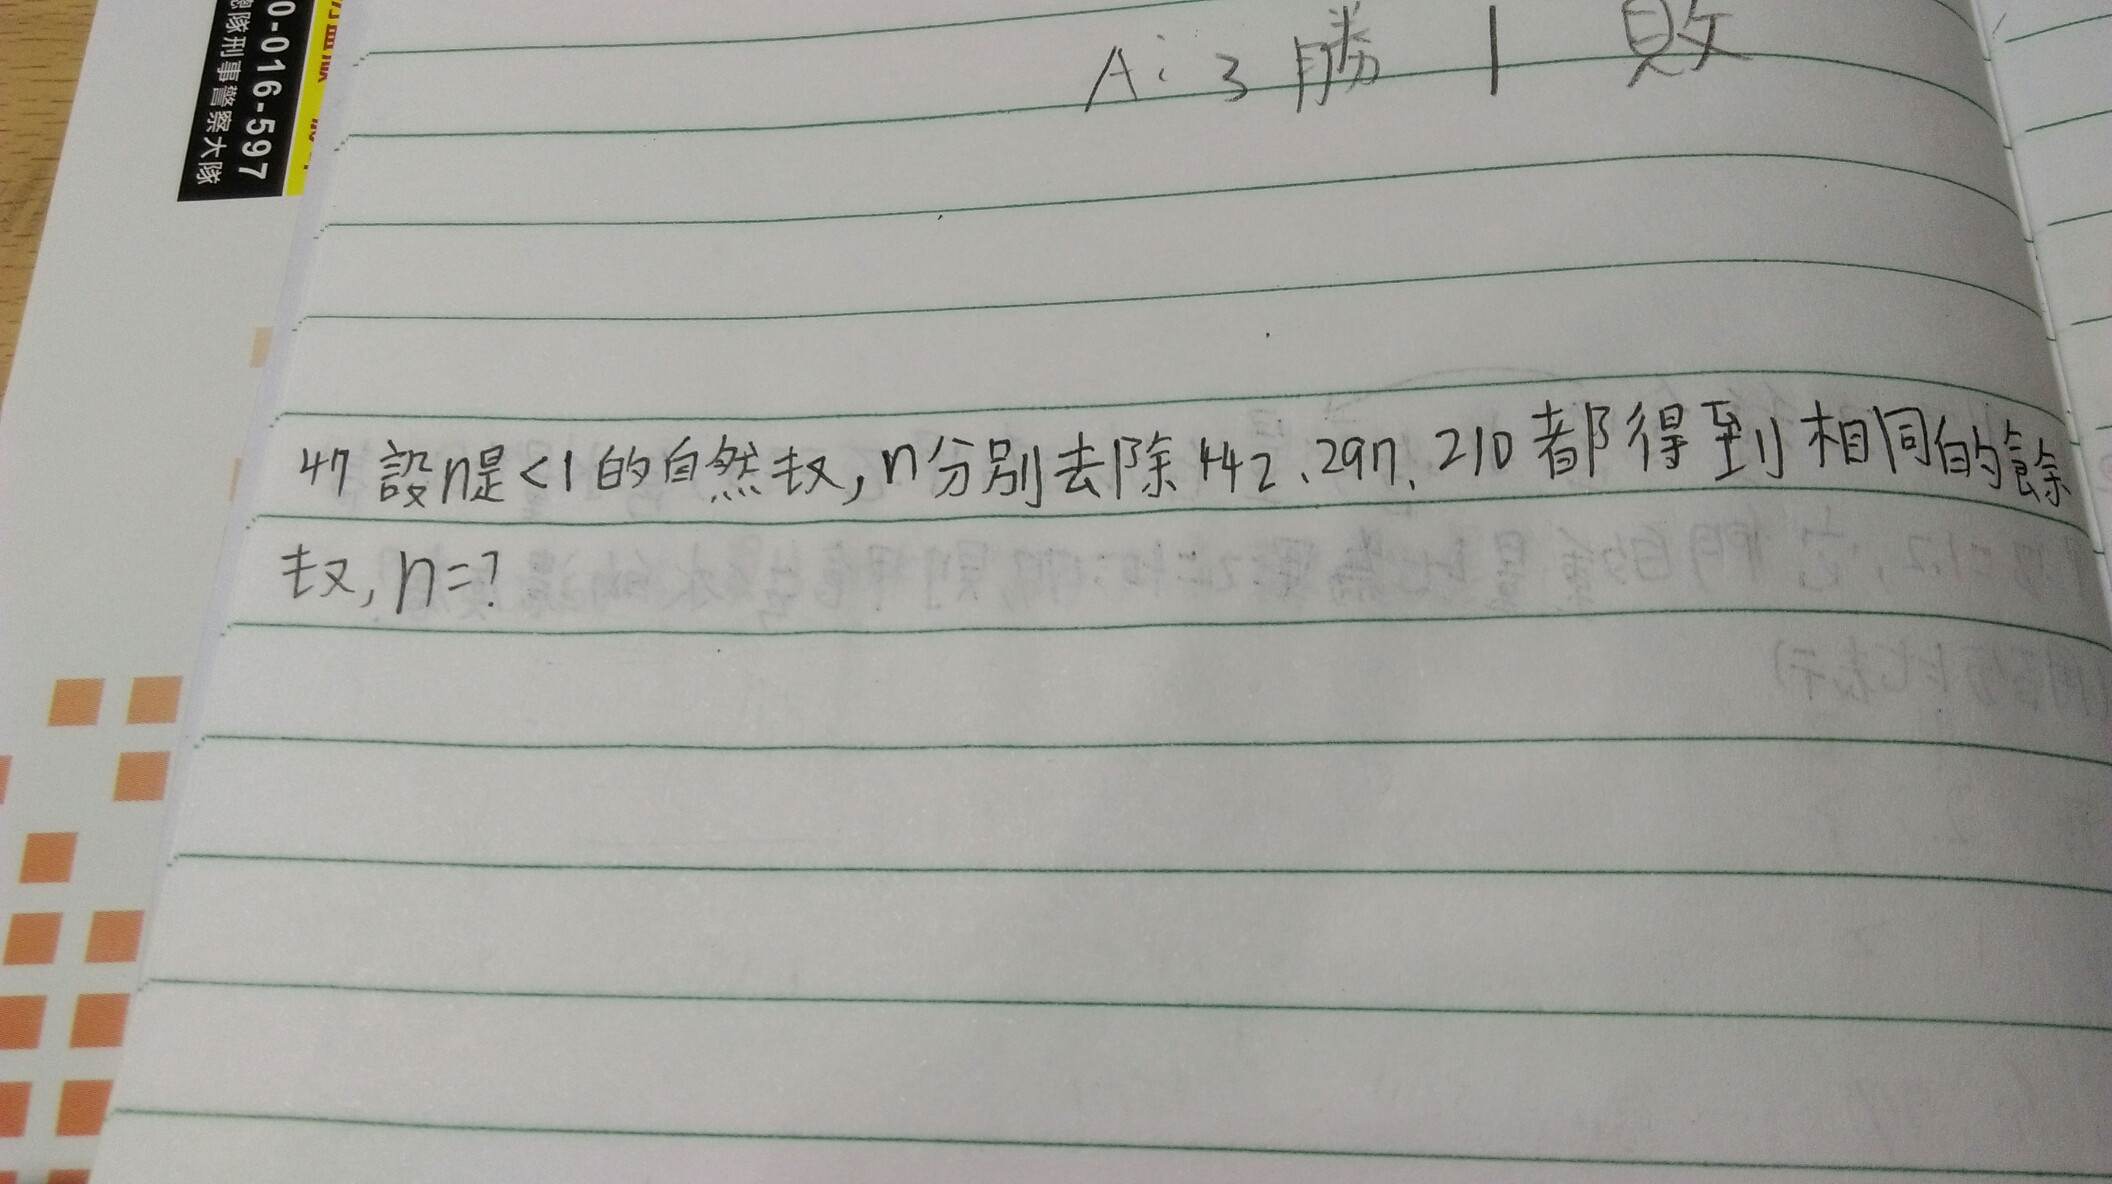 0-016-597
隊刑事警察大隊
A:3勝 1 敗
47 設n是<1的自然数,n分別去除442、297、210都得到相同的餘
数,n=?